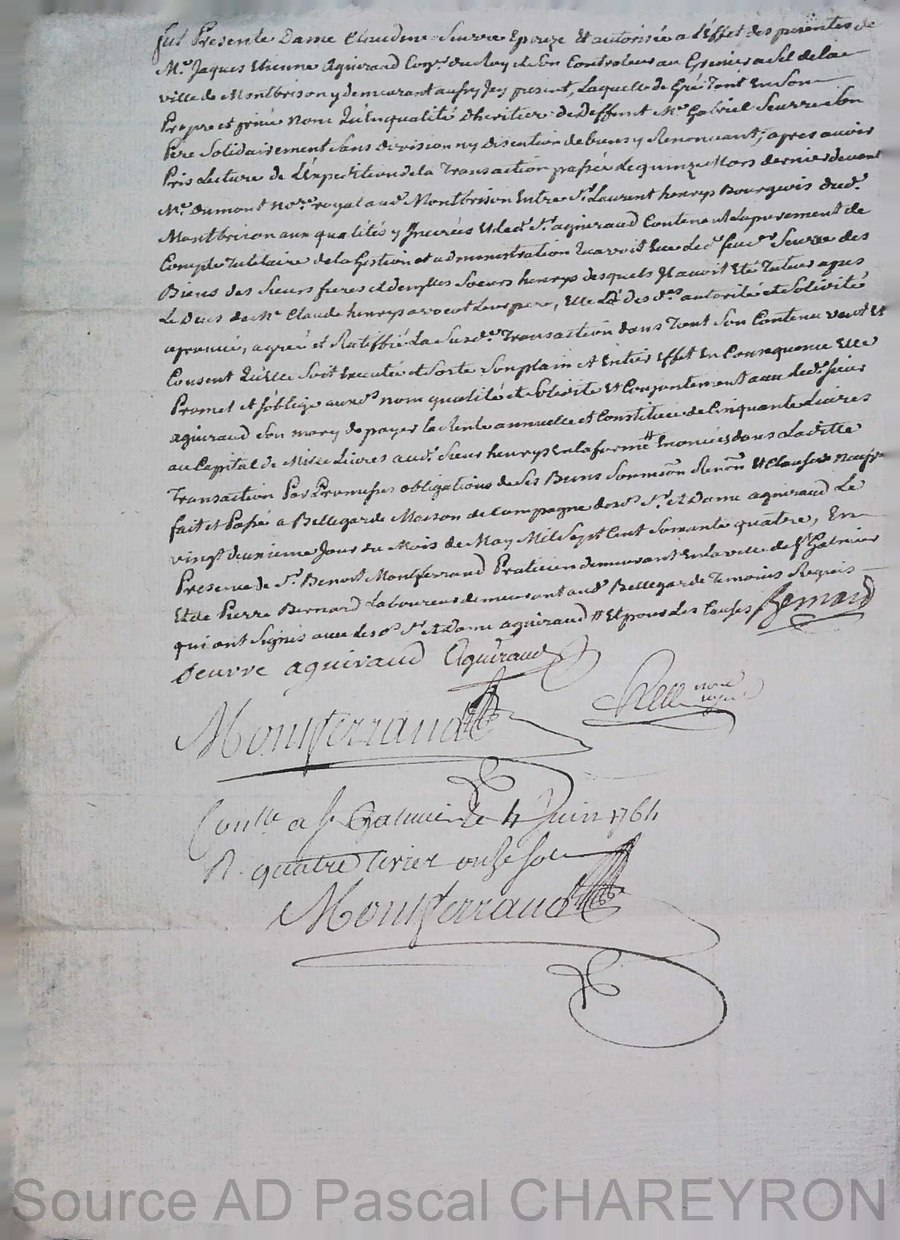 fut Presente Dame Claudine Seurre Epouze Et autorisée a L'Effet des presentes de
Mr. Jaques Etienne Aguiraud Cogr. du Roy et son Controlleur au Grenier a Sel de la
ville de Montbrison y demeurant aussy Icy present, Laquelle de Gré Tant En Son
Propre et privé nom Qu'En qualité d'heritier de Deffunt Mr. Gabriel Seurre son
Pere Solidairement Sans Division ny Discution de biens y Renonceant, apres avoir
Pris Lecture de L'Expedition de la Transaction passée Le quinze Mars dernier devant
Me. Dumont nore. royal aud. Montbrison Entre Sr. Laurent henrys Bourgeois dud.
Montbrison aux qualités y Inserées Et led. Sr. aguiraud Contenant L'apurement de
Compte Tutelaire de la Gestion et administration qu'avoit Eue led. feu Sr. Seurre des
Biens des Sieurs freres et demlles Soeurs henrys desquels Il avoit Eté Tuteur apres
Le Deces de Me. Claude henrys avocat Leur pere, Elle Là des ds. autorité et Solidité
aprouvé, agreé et Ratiffié La Susde. Transaction dans Tout Son Contenu veut Et
Consent qu'Elle Soit Executée et Sorte Son plain et Entier Effet En Consequence Elle
Promet et s'oblige aux ds. nom qualité et Solidité Et Conjointement aux led. Sieur
aguiraud Son mary de payer la Rente annuelle et Constituée de Cinquante Livres
au Capital de Mille Livres aud. Sieur henrys En la forme # Enoncées dans La ditte
Transaction Par Promesses obligations de Ses Biens Soumisson Renon Et Clauses
fait et Passé a Bellegarde Maison de Campagne desd. Sr. et Dame aguiraud Le
vingt deuxieme Jour du Mois de May Mil Sept Cent Soixante quatre, En
Presence de Sr. Benoit Montferrand Praticien demeurant En la ville de St. Galmier
Et de Pierre Bernard Laboureur demeurant aud. Bellegarde Temoins Requis
qui ont Signés avec lesd. Sr. et Dame aguiraud # Et pour Les Causes Bernard
Seurre aguiraud Aguiraud
Montferrand
nore royal
Conlle a St Galmier le 4 Juin 1764
R. quatre livres onse sols
Montferrand
Source AD Pascal CHAREYRON